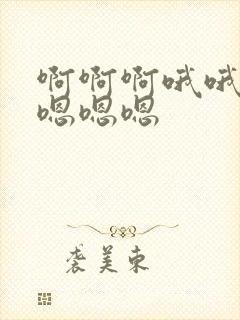 啊啊啊哦哦
嗯嗯嗯
袭美东